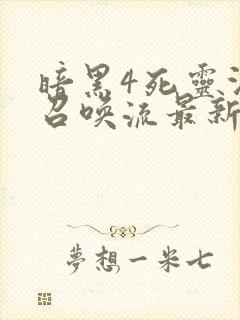 暗黑4死靈
召喚流最新
夢想一米七